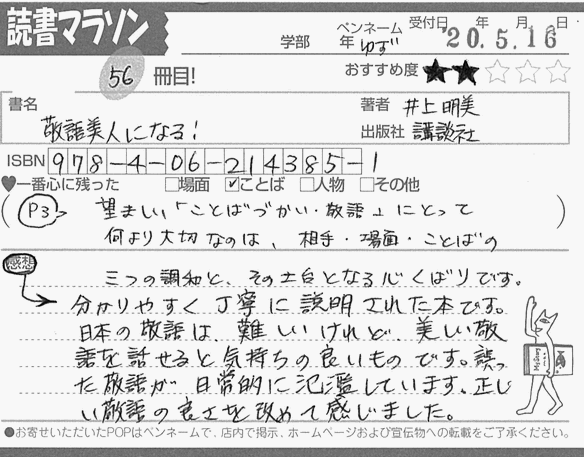 読書マラソン
学部 年 ペンネーム ゆず 受付日 年 月 日
'20.5.16
56 冊目! おすすめ度 ★★☆☆☆
書名 敬語美人になる!
著者 井上明美
出版社 講談社
ISBN 978-4-06-214385-1
♥一番心に残った □場面 ☑ことば □人物 □その他
(P3) 望ましい「ことばづかい・敬語」にとって
何より大切なのは、相手・場面・ことばの
感想
三つの調和と、その土台となる心くばりです。
分かりやすく丁寧に説明された本です。
日本の敬語は、難しいけれど、美しい敬
語を話せると気持ちの良いものです。誤っ
た敬語が日常的に氾濫しています。正し
い敬語の良さを改めて感じました。
●お寄せいただいたPOPはペンネームで、店内で掲示、ホームページおよび宣伝物への転載をご了承ください。